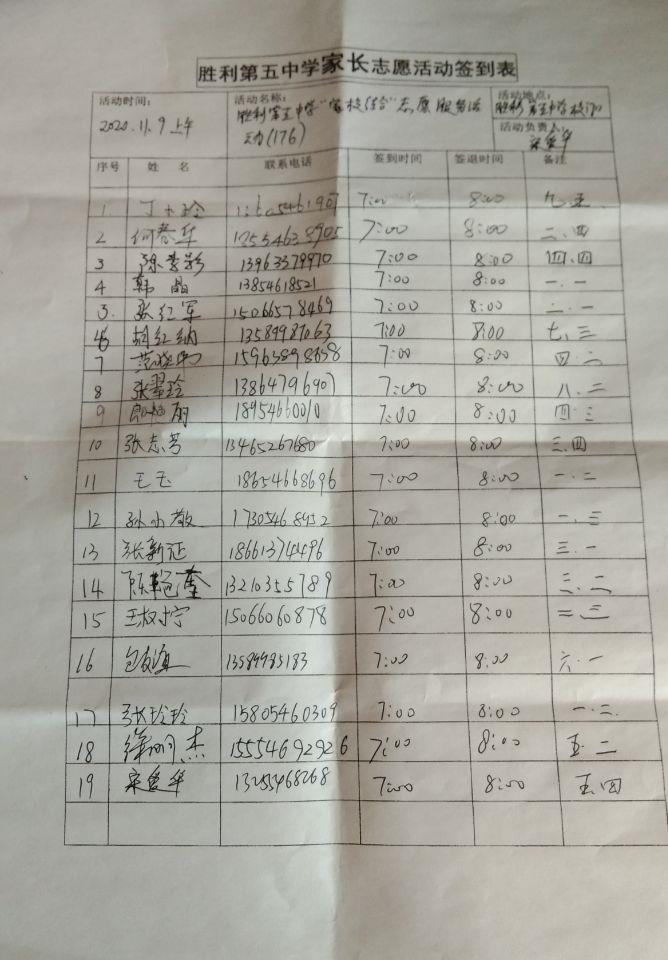 胜利第五中学家长志愿活动签到表
活动时间： 活动名称： 活动地点：
2020.11.9上午 胜利第五中学"家校结合"志愿服务活 胜利第五中学校门口
动(176) 活动负责人：
宋爱华
序号 姓名 联系电话 签到时间 签退时间 备注
1 7:00 8:00 九.五
2 何春华 13554638905 7:00 8:00 二.四
3 13963379970 7:00 8:00 四.四
4 韩晶 13854618521 7:00 8:00 一.一
5. 张红军 15066578469 7:00 8:00 二.一
6 胡红纳 13589987063 7:00 8:00 七.三
7 15963898658 7:00 8:00 四.二
8 张翠玲 13864796907 7:00 8:00 八.二
9 18954660010 7:00 8:00 四.三
10 张志芳 13465267680 7:00 8:00 三.四
11 王玉 18654668696 7:00 8:00 一.二
12 孙小敏 17305468432 7:00 8:00 一.三
13 张新征 18661374496 7:00 8:00 三.一
14 13210355789 7:00 8:00 三.二
15 王淑宁 15066060878 7:00 8:00 二.三
16 13589985183 7:00 8:00 六.一
17 张玲玲 15805460309 7:00 8:00 一.三
18 徐明杰 15554692926 7:00 8:00 五.二
19 宋爱华 13255468268 7:00 8:00 五.四